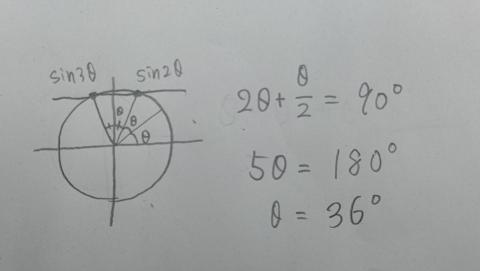 sin3θ sin2θ
θ
θ
θ
2θ + θ/2 = 90°
5θ = 180°
θ = 36°